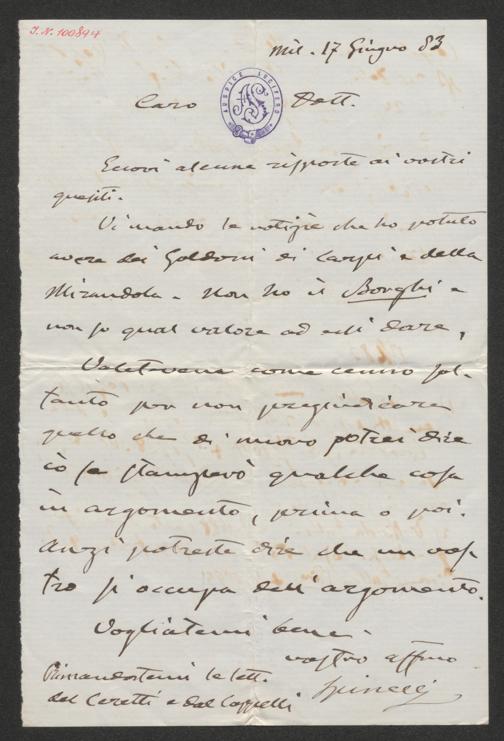 I.N. 100894
Mil. 17 Giugno 83
AUSPICE LUCIFERO
Caro Dott.
Eccovi alcune risposte ai vostri
quesiti.
Vi mando le notizie che ho potuto
avere dei Goldoni di Carpi e della
Mirandola. Non ho il Borghi e
non so qual valore ad esso dare,
Valetevene come cenno sol-
tanto per non pregiudicare
quello che di nuovo potrei dire
io se stamperò qualche cosa
in argomento, prima o poi.
Anzi potreste dire che un vos-
tro si occupa dell'argomento.
Vogliatemi bene.
vostro affmo
Rimandatemi le lett.
del Ceretti e del Cappelli